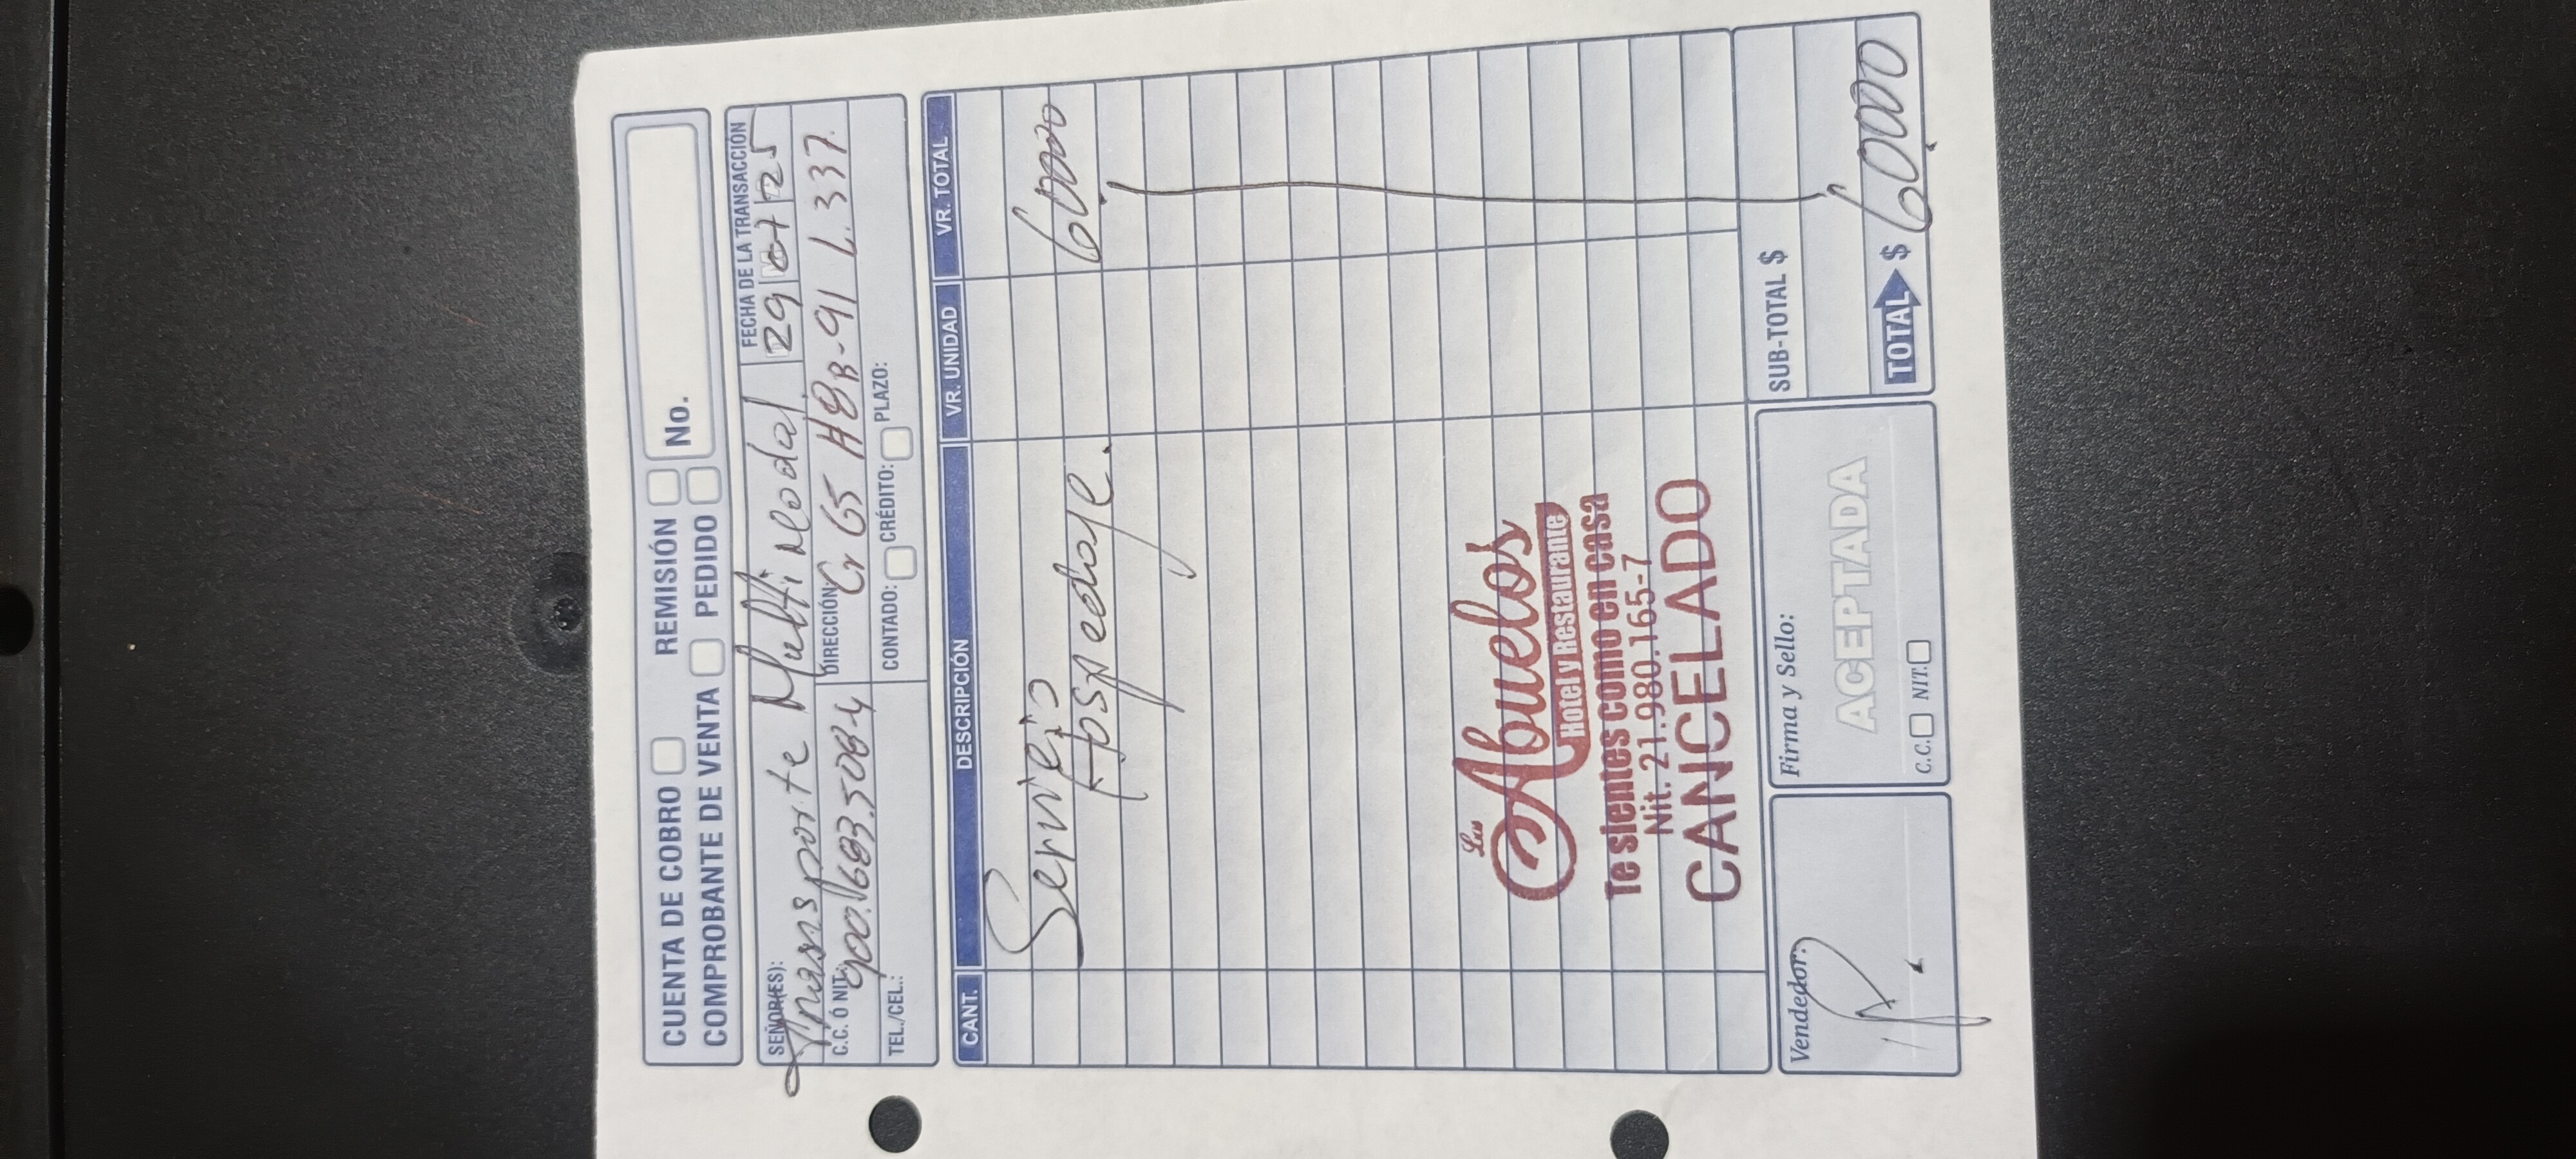 CUENTA DE COBRO REMISIÓN
COMPROBANTE DE VENTA PEDIDO No.
SEÑOR(ES): Transporte Multimodal
FECHA DE LA TRANSACCIÓN
29 07 25
C.C. Ó NIT: 900.
DIRECCIÓN: Cr 65 #8B-91 L. 337.
TEL./CEL.: CONTADO: CRÉDITO: PLAZO:
CANT. DESCRIPCIÓN VR. UNIDAD VR. TOTAL
Servicio
Hospedaje. 60.000
Los
Abuelos
Hotel y Restaurane
Te sientes como en casa
Nit. 21.980.165-7
CANCELADO
SUB-TOTAL $
TOTAL $ 60.000
Vendedor:
Firma y Sello:
ACEPTADA
C.C. NIT.